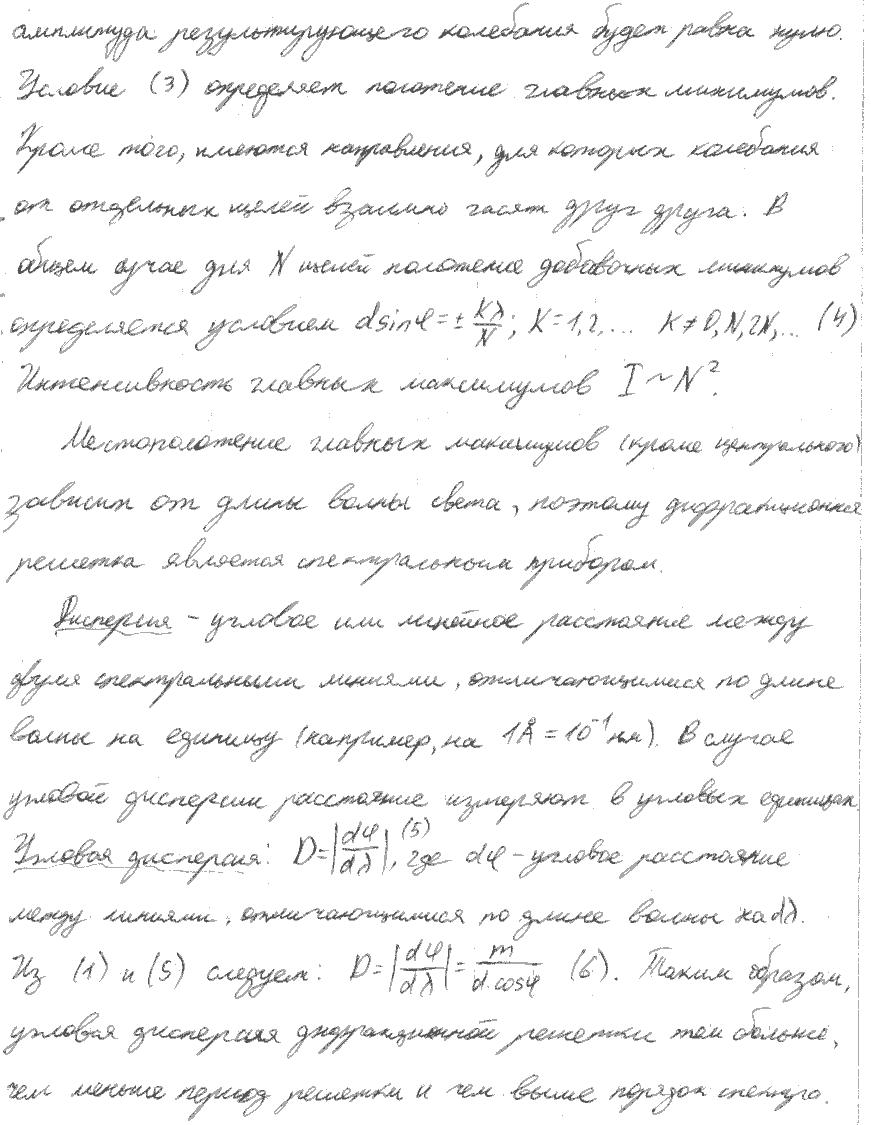 амплитуда результирующего колебания будет равна нулю.
Условие (3) определяет положение главных минимумов.
Кроме того, имеются направления, для которых колебания
от отдельных щелей взаимно гасят друг друга. В
общем случае для N щелей положение добавочных минимумов
определяется условием dsinφ = ± Kλ/N; K = 1,2,... K ≠ 0,N,2N,... (4)
Интенсивность главных максимумов I ~ N².
Местоположение главных максимумов (кроме центрального)
зависит от длины волны света, поэтому дифракционная
решетка является спектральным прибором.
Дисперсия – угловое или линейное расстояние между
двумя спектральными линиями, отличающимися по длине
волны на единицу (например, на 1Å = 10⁻¹ нм). В случае
угловой дисперсии расстояние измеряют в угловых единицах.
Угловая дисперсия: D = |dφ/dλ|, (5) где dφ – угловое расстояние
между линиями, отличающимися по длине волны на dλ.
Из (1) и (5) следует: D = |dφ/dλ| = m/d.cosφ (6). Таким образом,
угловая дисперсия дифракционной решетки тем больше,
чем меньше период решетки и чем выше порядок спектра.